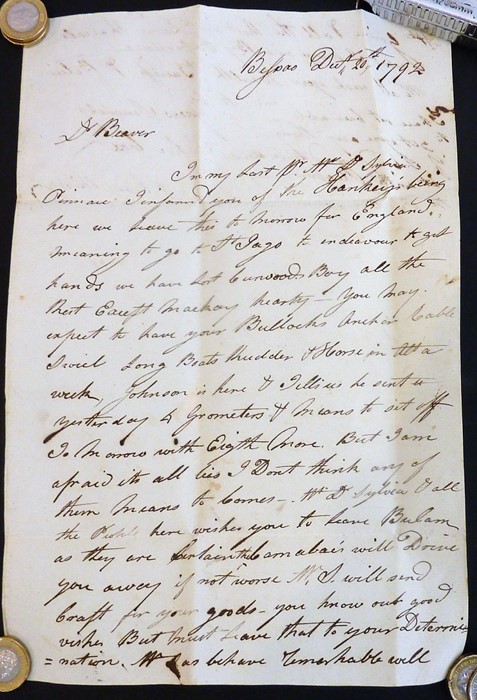 Bissao Decr 20th 1792
Dr Beaver
In my last pr. Mr. D Sylvia
Pinnace I inform'd you of the Hankeys being
here we leave this to morrow for England,
meaning to go to St. Jago to endeavour to get
hands we have lost Curwoods Boy all the
Rest Except Mackay hearty – you may
expect to have your Bullocks Anchor Cable
Swivel Long Boats Rudder & Horse in
week, Johnson is here & Tells us he sent
yesterday 4 Grometers & Means to set off
To Morrow with Eigth More. But I am
afraid its all lies I Dont think any of
them Means to Come – Mr. D Sylvia & all
the People here wishes you to leave Bulam
as they are certain the Canabais will Drive
you away if not worse Mr. S. will send
Craft for your goods – you know our good
wishes But must Leave that to your Determi=
=nation. behave remarkable well